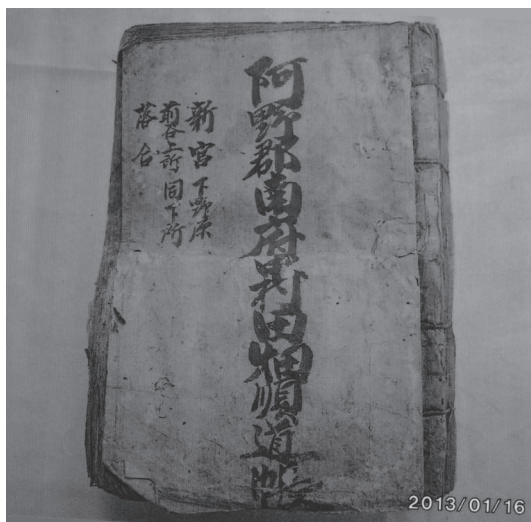 阿野郡南府村田畑順道帳
新宮 下野原
前谷上所 同下所
落合
2013/01/16